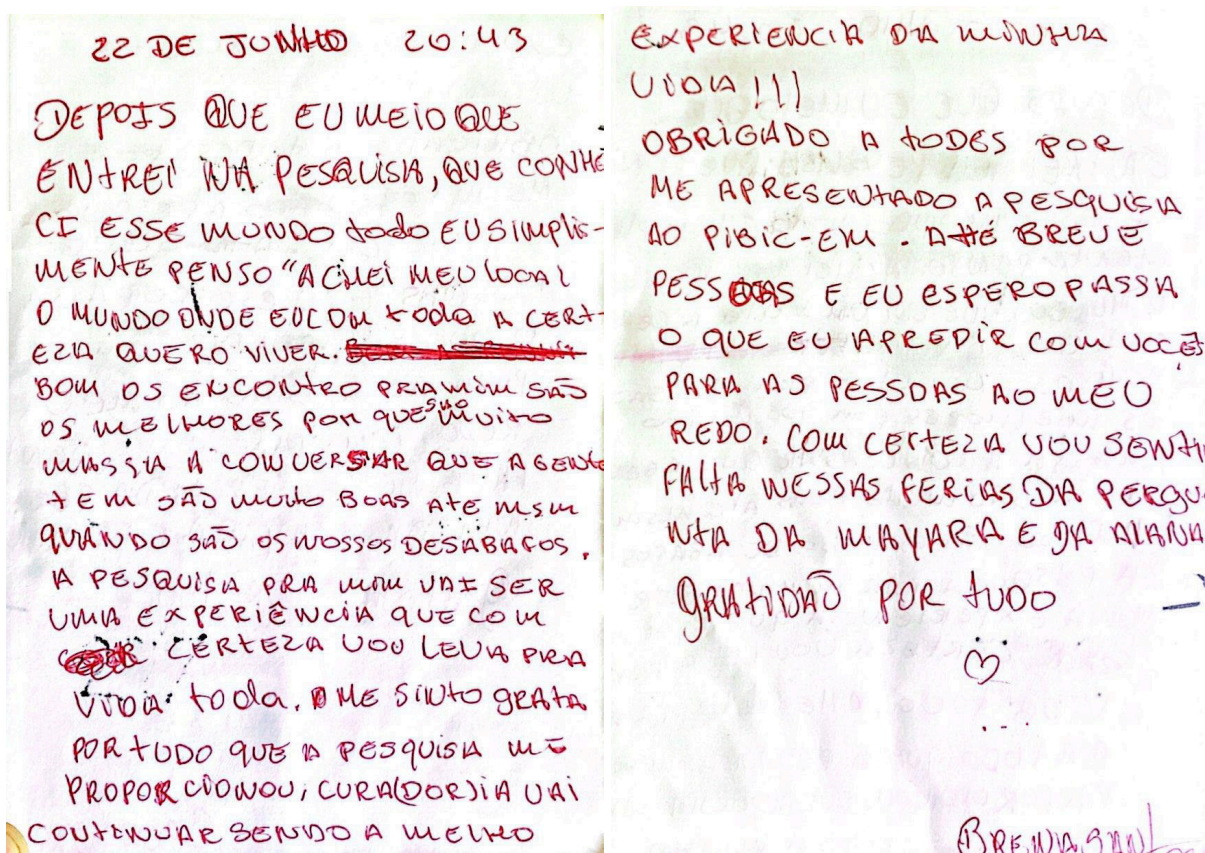 22 DE JUNHO 20:43
DEPOIS QUE EU MEIO QUE
ENTREI NA PESQUISA, QUE CONHE
CI ESSE MUNDO todo EU SIMPLIS-
MENTE PENSO "ACHEI MEU LOCAl
O MUNDO ONDE EU COM toda A CERT-
EZA QUERO VIVER.
BOM OS ENCONTRO PRA MIM SÃO
OS MELHORES POR QUE SÃO MUITO
MASSA A CONVERSAR QUE A GENTE
TEM SÃO MUITO BOAS ATE MSM
QUANDO SÃO OS NOSSOS DESABAFOS.
A PESQUISA PRA MIM VAI SER
UMA EXPERIÊNCIA QUE COM
CERTEZA VOU LEVA PRA
VIDA toda. ME SINTO GRATA
POR TUDO QUE A PESQUISA ME
PROPORCIONOU; CURA(DOR)IA VAI
CONTINUAR SENDO A MELHO
EXPERIENCIA DA MINHA
VIDA!!!
OBRIGADO A tODES POR
ME APRESENTADO A PESQUISA
AO PIBIC-EM. ATHÉ BREVE
PESSOAS E EU ESPERO PASSA
O QUE EU APREDIR COM VOCÊS
PARA AS PESSOAS AO MEU
REDO. COM CERTEZA VOU SENTI
FALTA NESSAS FERIAS DA PERGU
NTA DA MAYARA E DA ALANA
GRATIDÃO POR TUDO